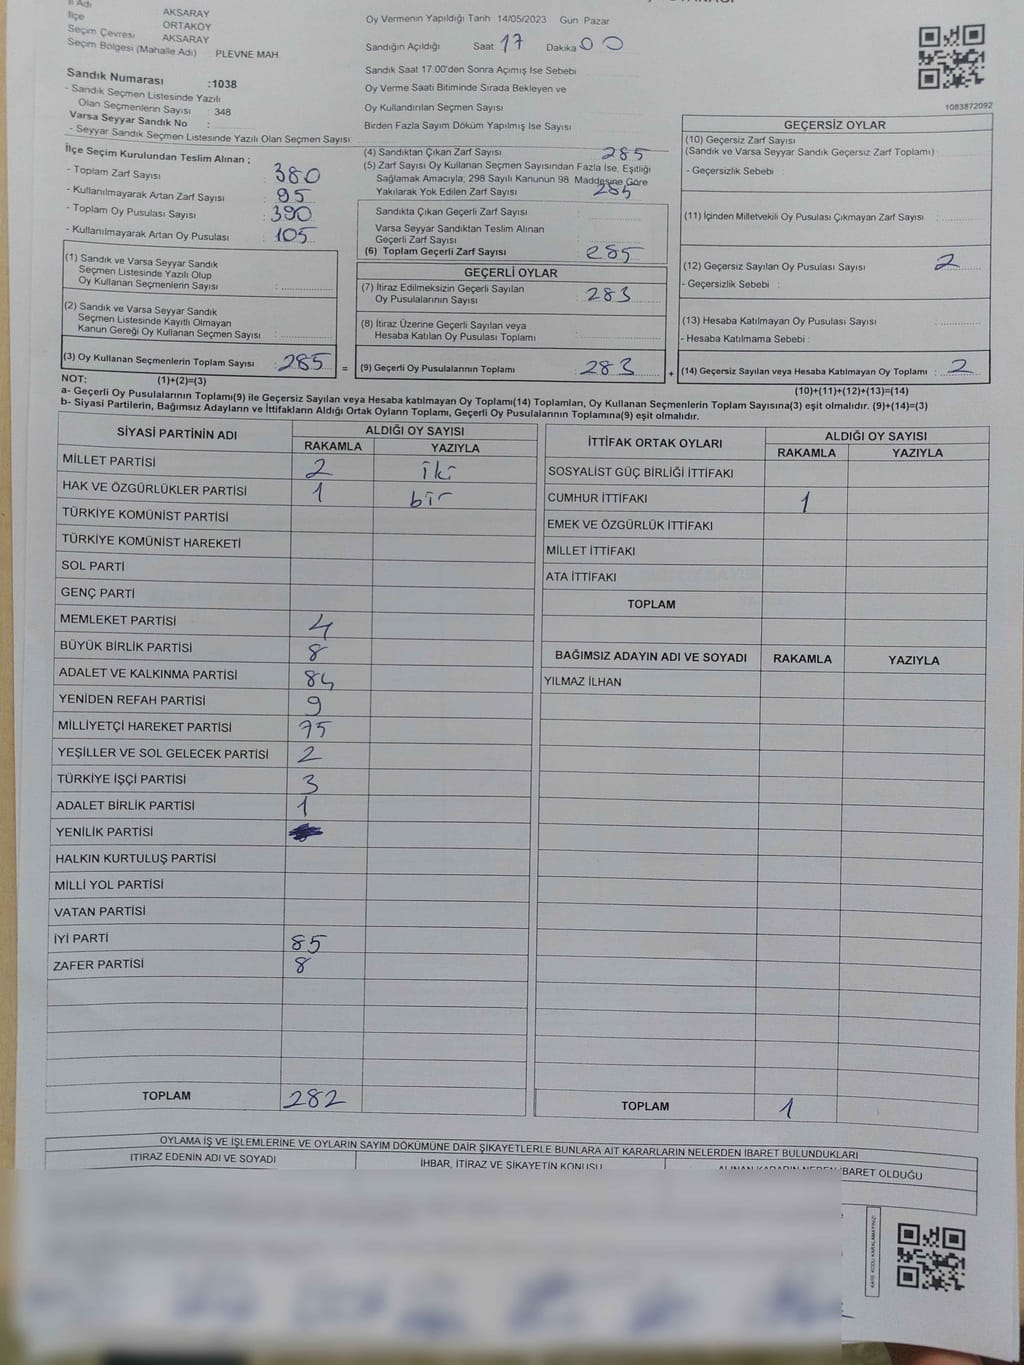 İl Adı AKSARAY
İlçe ORTAKÖY
Seçim Çevresi AKSARAY
Seçim Bölgesi (Mahalle Adı) PLEVNE MAH
Sandık Numarası :1038
- Sandık Seçmen Listesinde Yazılı
Olan Seçmenlerin Sayısı : 348
Varsa Seyyar Sandık No :
- Seyyar Sandık Seçmen Listesinde Yazılı Olan Seçmen Sayısı
Oy Vermenin Yapıldığı Tarih 14/05/2023 Gün Pazar
Sandığın Açıldığı Saat 17 Dakika 00
Sandık Saat 17.00'den Sonra Açımış İse Sebebi
Oy Verme Saati Bitiminde Sırada Bekleyen ve
Oy Kullandırılan Seçmen Sayısı
Birden Fazla Sayım Döküm Yapılmış İse Sayısı
1083872092
İlçe Seçim Kurulundan Teslim Alınan ;
- Toplam Zarf Sayısı : 380
- Kullanılmayarak Artan Zarf Sayısı : 95
- Toplam Oy Pusulası Sayısı : 390
- Kullanılmayarak Artan Oy Pusulası : 105
(1) Sandık ve Varsa Seyyar Sandık
Seçmen Listesinde Yazılı Olup
Oy Kullanan Seçmenlerin Sayısı :
(2) Sandık ve Varsa Seyyar Sandık
Seçmen Listesinde Kayıtlı Olmayan
Kanun Gereği Oy Kullanan Seçmen Sayısı :
(3) Oy Kullanan Seçmenlerin Toplam Sayısı : 285 =
(4) Sandıktan Çıkan Zarf Sayısı 285
(5) Zarf Sayısı Oy Kullanan Seçmen Sayısından Fazla İse, Eşitliği
Sağlamak Amacıyla; 298 Sayılı Kanunun 98. Maddesine Göre
Yakılarak Yok Edilen Zarf Sayısı 285
Sandıkta Çıkan Geçerli Zarf Sayısı :
Varsa Seyyar Sandıktan Teslim Alınan
Geçerli Zarf Sayısı :
(6) Toplam Geçerli Zarf Sayısı : 285
GEÇERLİ OYLAR
(7) İtiraz Edilmeksizin Geçerli Sayılan
Oy Pusulalarının Sayısı : 283
(8) İtiraz Üzerine Geçerli Sayılan veya
Hesaba Katılan Oy Pusulası Toplamı :
(9) Geçerli Oy Pusulalarının Toplamı : 283 +
GEÇERSİZ OYLAR
(10) Geçersiz Zarf Sayısı
(Sandık ve Varsa Seyyar Sandık Geçersiz Zarf Toplamı) :
- Geçersizlik Sebebi :
(11) İçinden Milletvekili Oy Pusulası Çıkmayan Zarf Sayısı :
(12) Geçersiz Sayılan Oy Pusulası Sayısı : 2
- Geçersizlik Sebebi :
(13) Hesaba Katılmayan Oy Pusulası Sayısı :
- Hesaba Katılmama Sebebi :
(14) Geçersiz Sayılan veya Hesaba Katılmayan Oy Toplamı : 2
NOT: (1)+(2)=(3) (10)+(11)+(12)+(13)=(14)
a- Geçerli Oy Pusulalarının Toplamı(9) ile Geçersiz Sayılan veya Hesaba katılmayan Oy Toplamı(14) Toplamları, Oy Kullanan Seçmenlerin Toplam Sayısına(3) eşit olmalıdır. (9)+(14)=(3)
b- Siyasi Partilerin, Bağımsız Adayların ve İttifakların Aldığı Ortak Oyların Toplamı, Geçerli Oy Pusulalarının Toplamına(9) eşit olmalıdır.
SİYASİ PARTİNİN ADI ALDIĞI OY SAYISI
RAKAMLA YAZIYLA
MİLLET PARTİSİ 2 iki
HAK VE ÖZGÜRLÜKLER PARTİSİ 1 bir
TÜRKİYE KOMÜNİST PARTİSİ
TÜRKİYE KOMÜNİST HAREKETİ
SOL PARTİ
GENÇ PARTİ
MEMLEKET PARTİSİ 4
BÜYÜK BİRLİK PARTİSİ 8
ADALET VE KALKINMA PARTİSİ 84
YENİDEN REFAH PARTİSİ 9
MİLLİYETÇİ HAREKET PARTİSİ 75
YEŞİLLER VE SOL GELECEK PARTİSİ 2
TÜRKİYE İŞÇİ PARTİSİ 3
ADALET BİRLİK PARTİSİ 1
YENİLİK PARTİSİ
HALKIN KURTULUŞ PARTİSİ
MİLLİ YOL PARTİSİ
VATAN PARTİSİ
İYİ PARTİ 85
ZAFER PARTİSİ 8
TOPLAM 282
İTTİFAK ORTAK OYLARI ALDIĞI OY SAYISI
RAKAMLA YAZIYLA
SOSYALİST GÜÇ BİRLİĞİ İTTİFAKI
CUMHUR İTTİFAKI 1
EMEK VE ÖZGÜRLÜK İTTİFAKI
MİLLET İTTİFAKI
ATA İTTİFAKI
TOPLAM
BAĞIMSIZ ADAYIN ADI VE SOYADI RAKAMLA YAZIYLA
YILMAZ İLHAN
TOPLAM 1
OYLAMA İŞ VE İŞLEMLERİNE VE OYLARIN SAYIM DÖKÜMÜNE DAİR ŞİKAYETLERLE BUNLARA AİT KARARLARIN NELERDEN İBARET BULUNDUKLARI
İTİRAZ EDENİN ADI VE SOYADI İHBAR, İTİRAZ VE ŞİKAYETİN KONUSU ALINAN KARARIN NEDEN İBARET OLDUĞU
KARE KODU KARALAMAYINIZ!